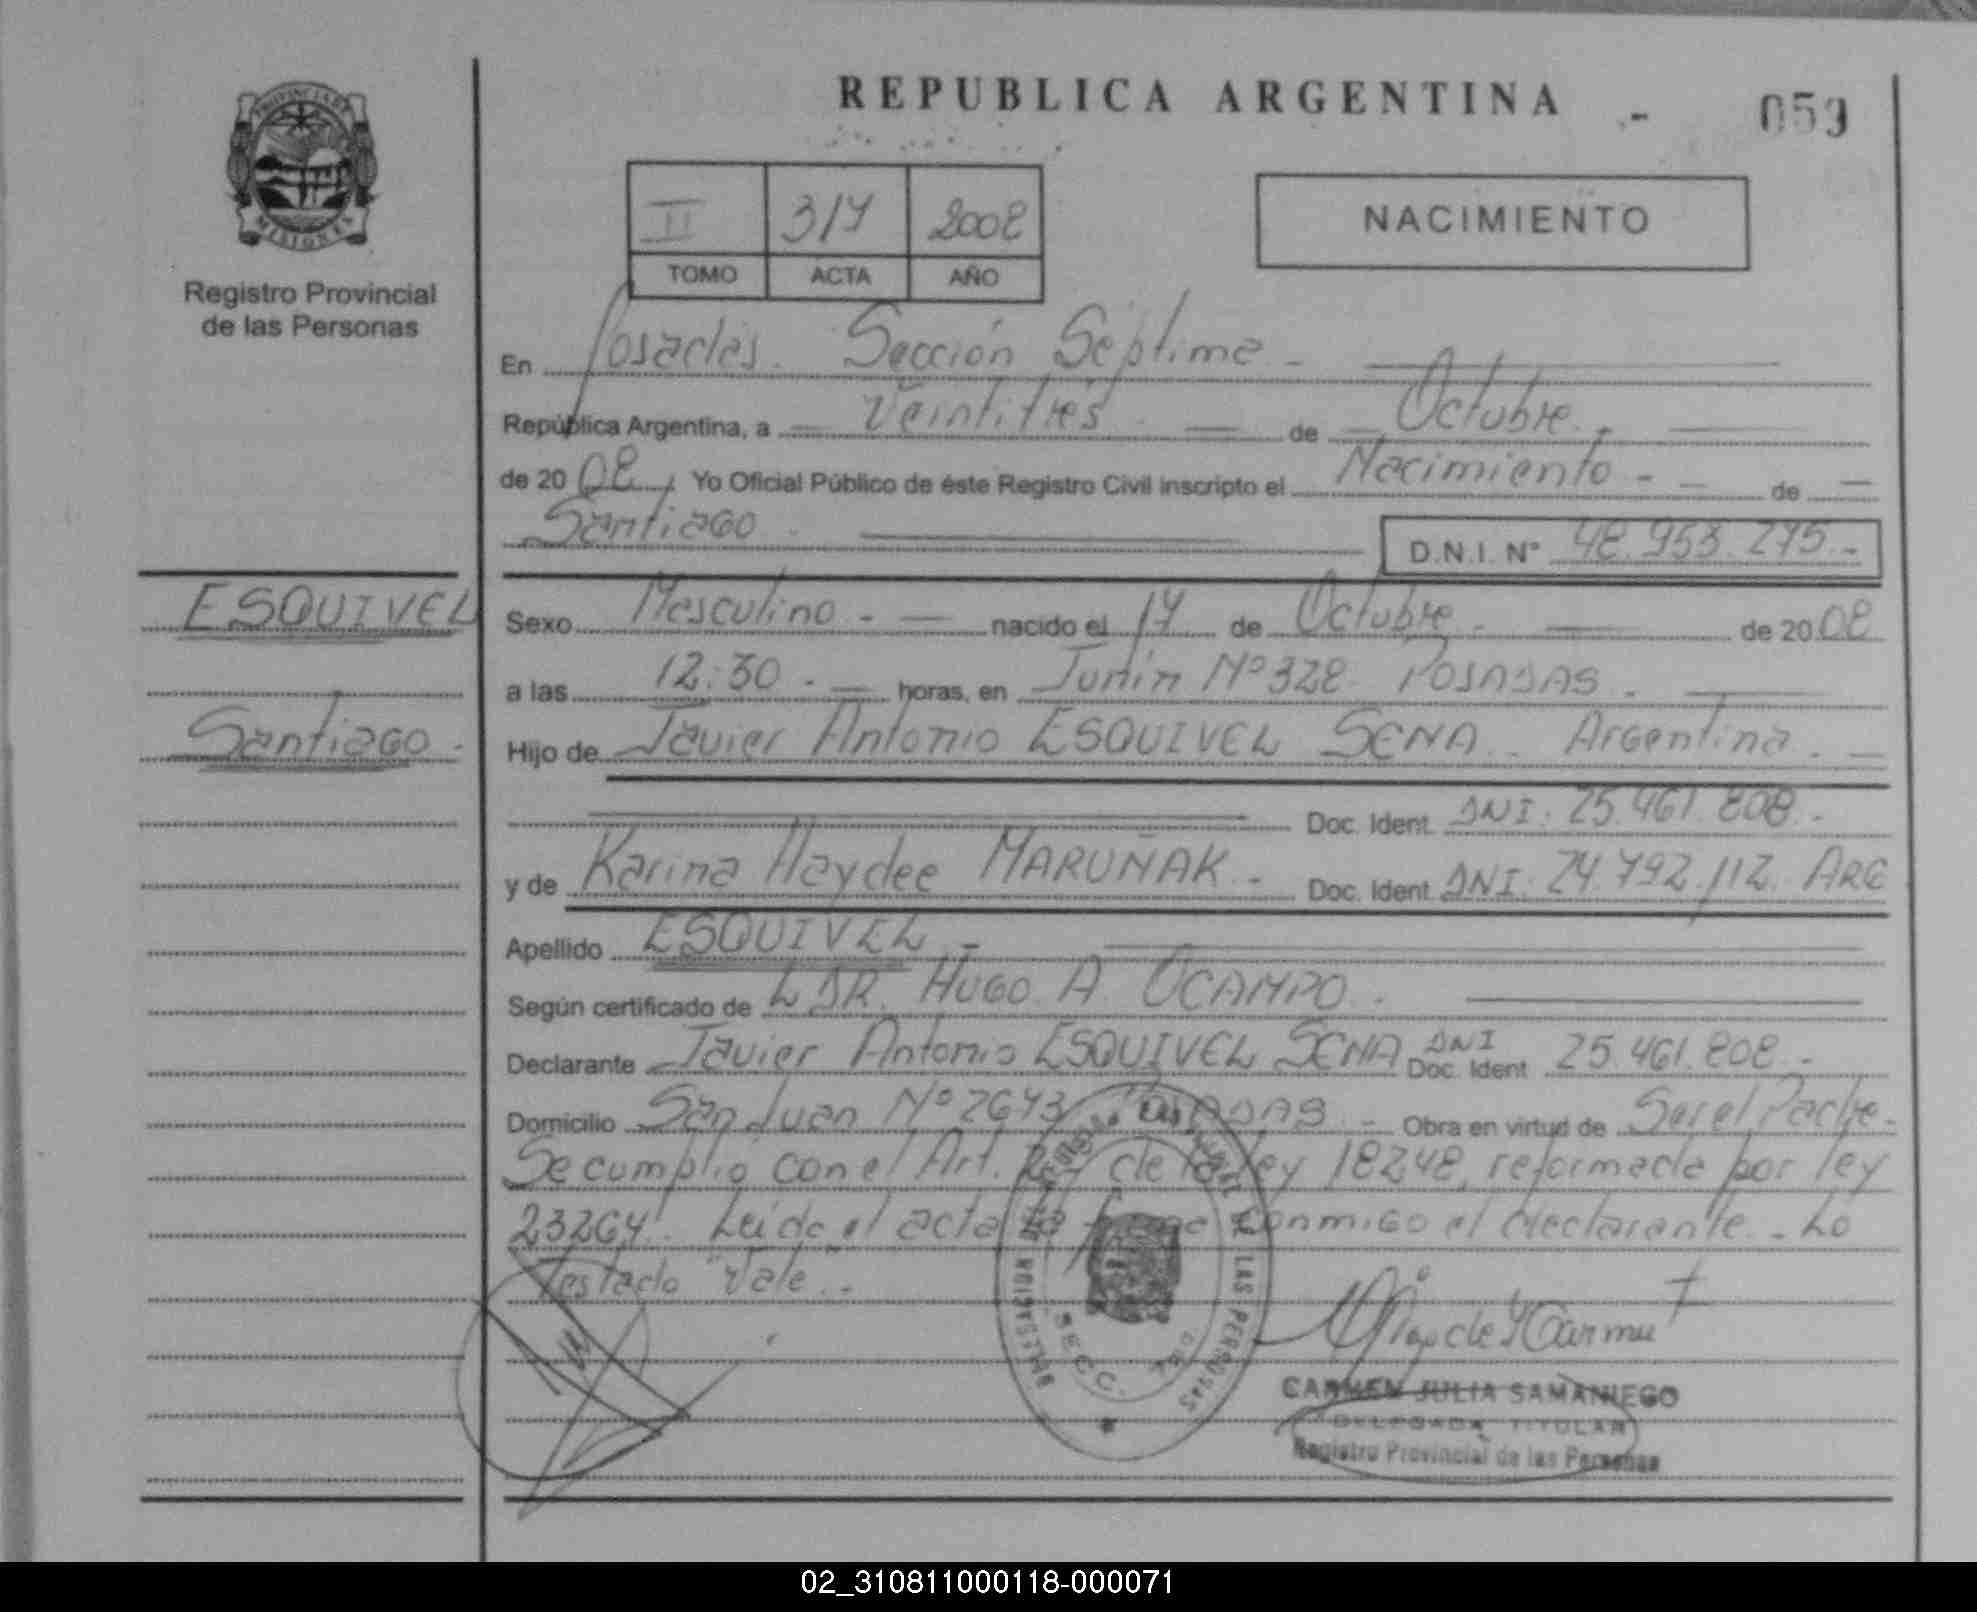 REPUBLICA ARGENTINA - 059
PROVINCIA DE
MISIONES
Registro Provincial
de las Personas
II 317 2008
TOMO ACTA AÑO
NACIMIENTO
En Posadas. Sección Séptima. -
República Argentina, a — Veintitres — de — Octubre. —
de 20 08, Yo Oficial Público de éste Registro Civil inscripto el Nacimiento - — de —
Santiago. D.N.I. N° 48.953.275.-
ESQUIVEL
Santiago.-
Sexo Masculino. - — nacido el 17 de Octubre. — de 20 08
a las 12:30. - — horas, en Junín Nº 328. POSADAS. —
Hijo de Javier Antonio ESQUIVEL SENA. Argentina. —
Doc. Ident. DNI. 25.461.808.-
y de Karina Haydee MARUÑAK. - Doc. Ident. DNI. 24.792.112. ARG
Apellido ESQUIVEL. -
Según certificado de L DR. HUGO A. OCAMPO.
Declarante Javier Antonio ESQUIVEL SENA DNI Doc. Ident. 25.461.808.-
Domicilio San Juan Nº 2643 POSADAS. - Obra en virtud de Ser el Padre.-
Se cumplió con el Art. de la ley 18248, reformada por ley
23264. Leída el acta la firma conmigo el declarante. - Lo
testado "Vale".-
DE LAS PERSONAS
SECC.
CARMEN JULIA SAMANIEGO
DELEGADA TITULAR
Registro Provincial de las Personas
02_310811000118-000071